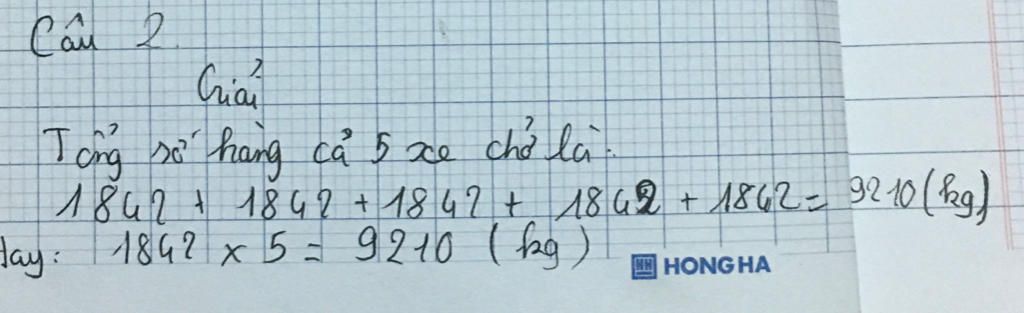 Câu 2.
Giải
Tổng số hàng cả 5 xe chở là:
1842 + 1842 + 1842 + 1842 + 1842 = 9210 (kg)
Hay: 1842 x 5 = 9210 (kg)
HH HONG HA